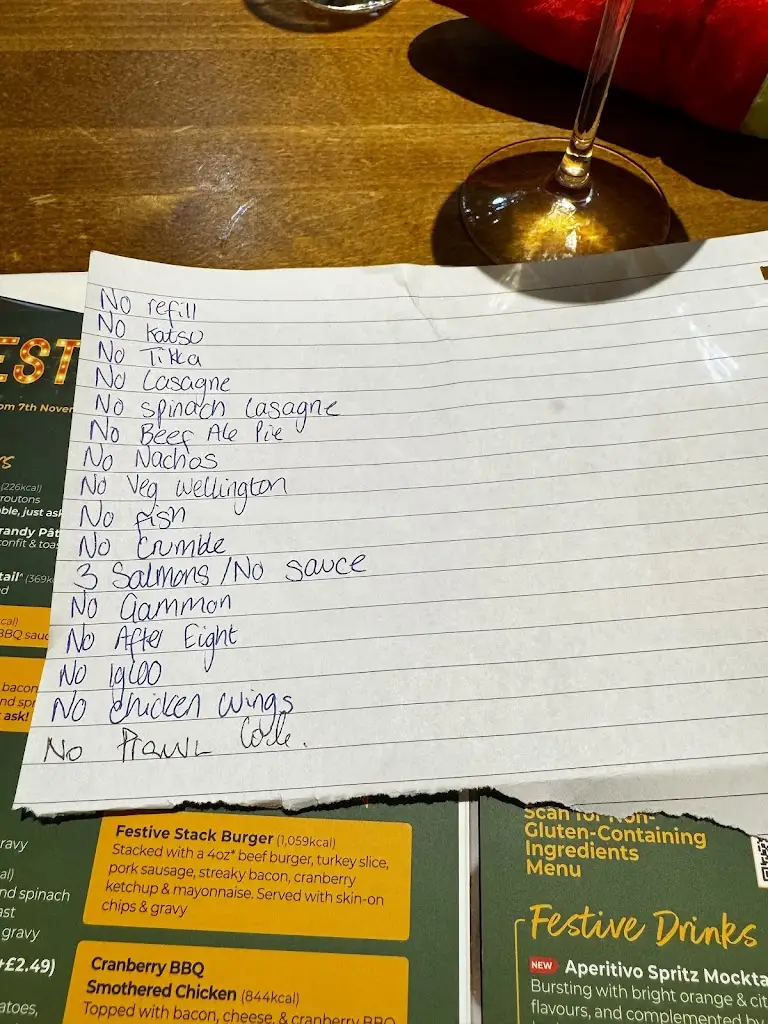 No refill
No Katsu
No Tikka
No Lasagne
No spinach Lasagne
No Beef Ale Pie
No Nachos
No Veg wellington
No fish
No Crumble
3 Salmons / No sauce
No Gammon
No After Eight
No Igloo
No chicken wings
No Prawn
EST
om 7th Nover
(226kcal)
routons
ble, just ask
randy Pât
confit & toas
tail* (369k
ed
cal)
BBQ sauc
bacon
nd sp
ask!
ravy
al)
nd spinach
ast
gravy
+£2.49)
atoes,
Festive Stack Burger (1,059kcal)
Stacked with a 4oz* beef burger, turkey slice,
pork sausage, streaky bacon, cranberry
ketchup & mayonnaise. Served with skin-on
chips & gravy
Cranberry BBQ
Smothered Chicken (844kcal)
Topped with bacon, cheese, & cranberry BBQ
Scan for Non-
Gluten-Containing
Ingredients
Menu
Festive Drinks
NEW Aperitivo Spritz Mockta
Bursting with bright orange & cit
flavours, and complemented by